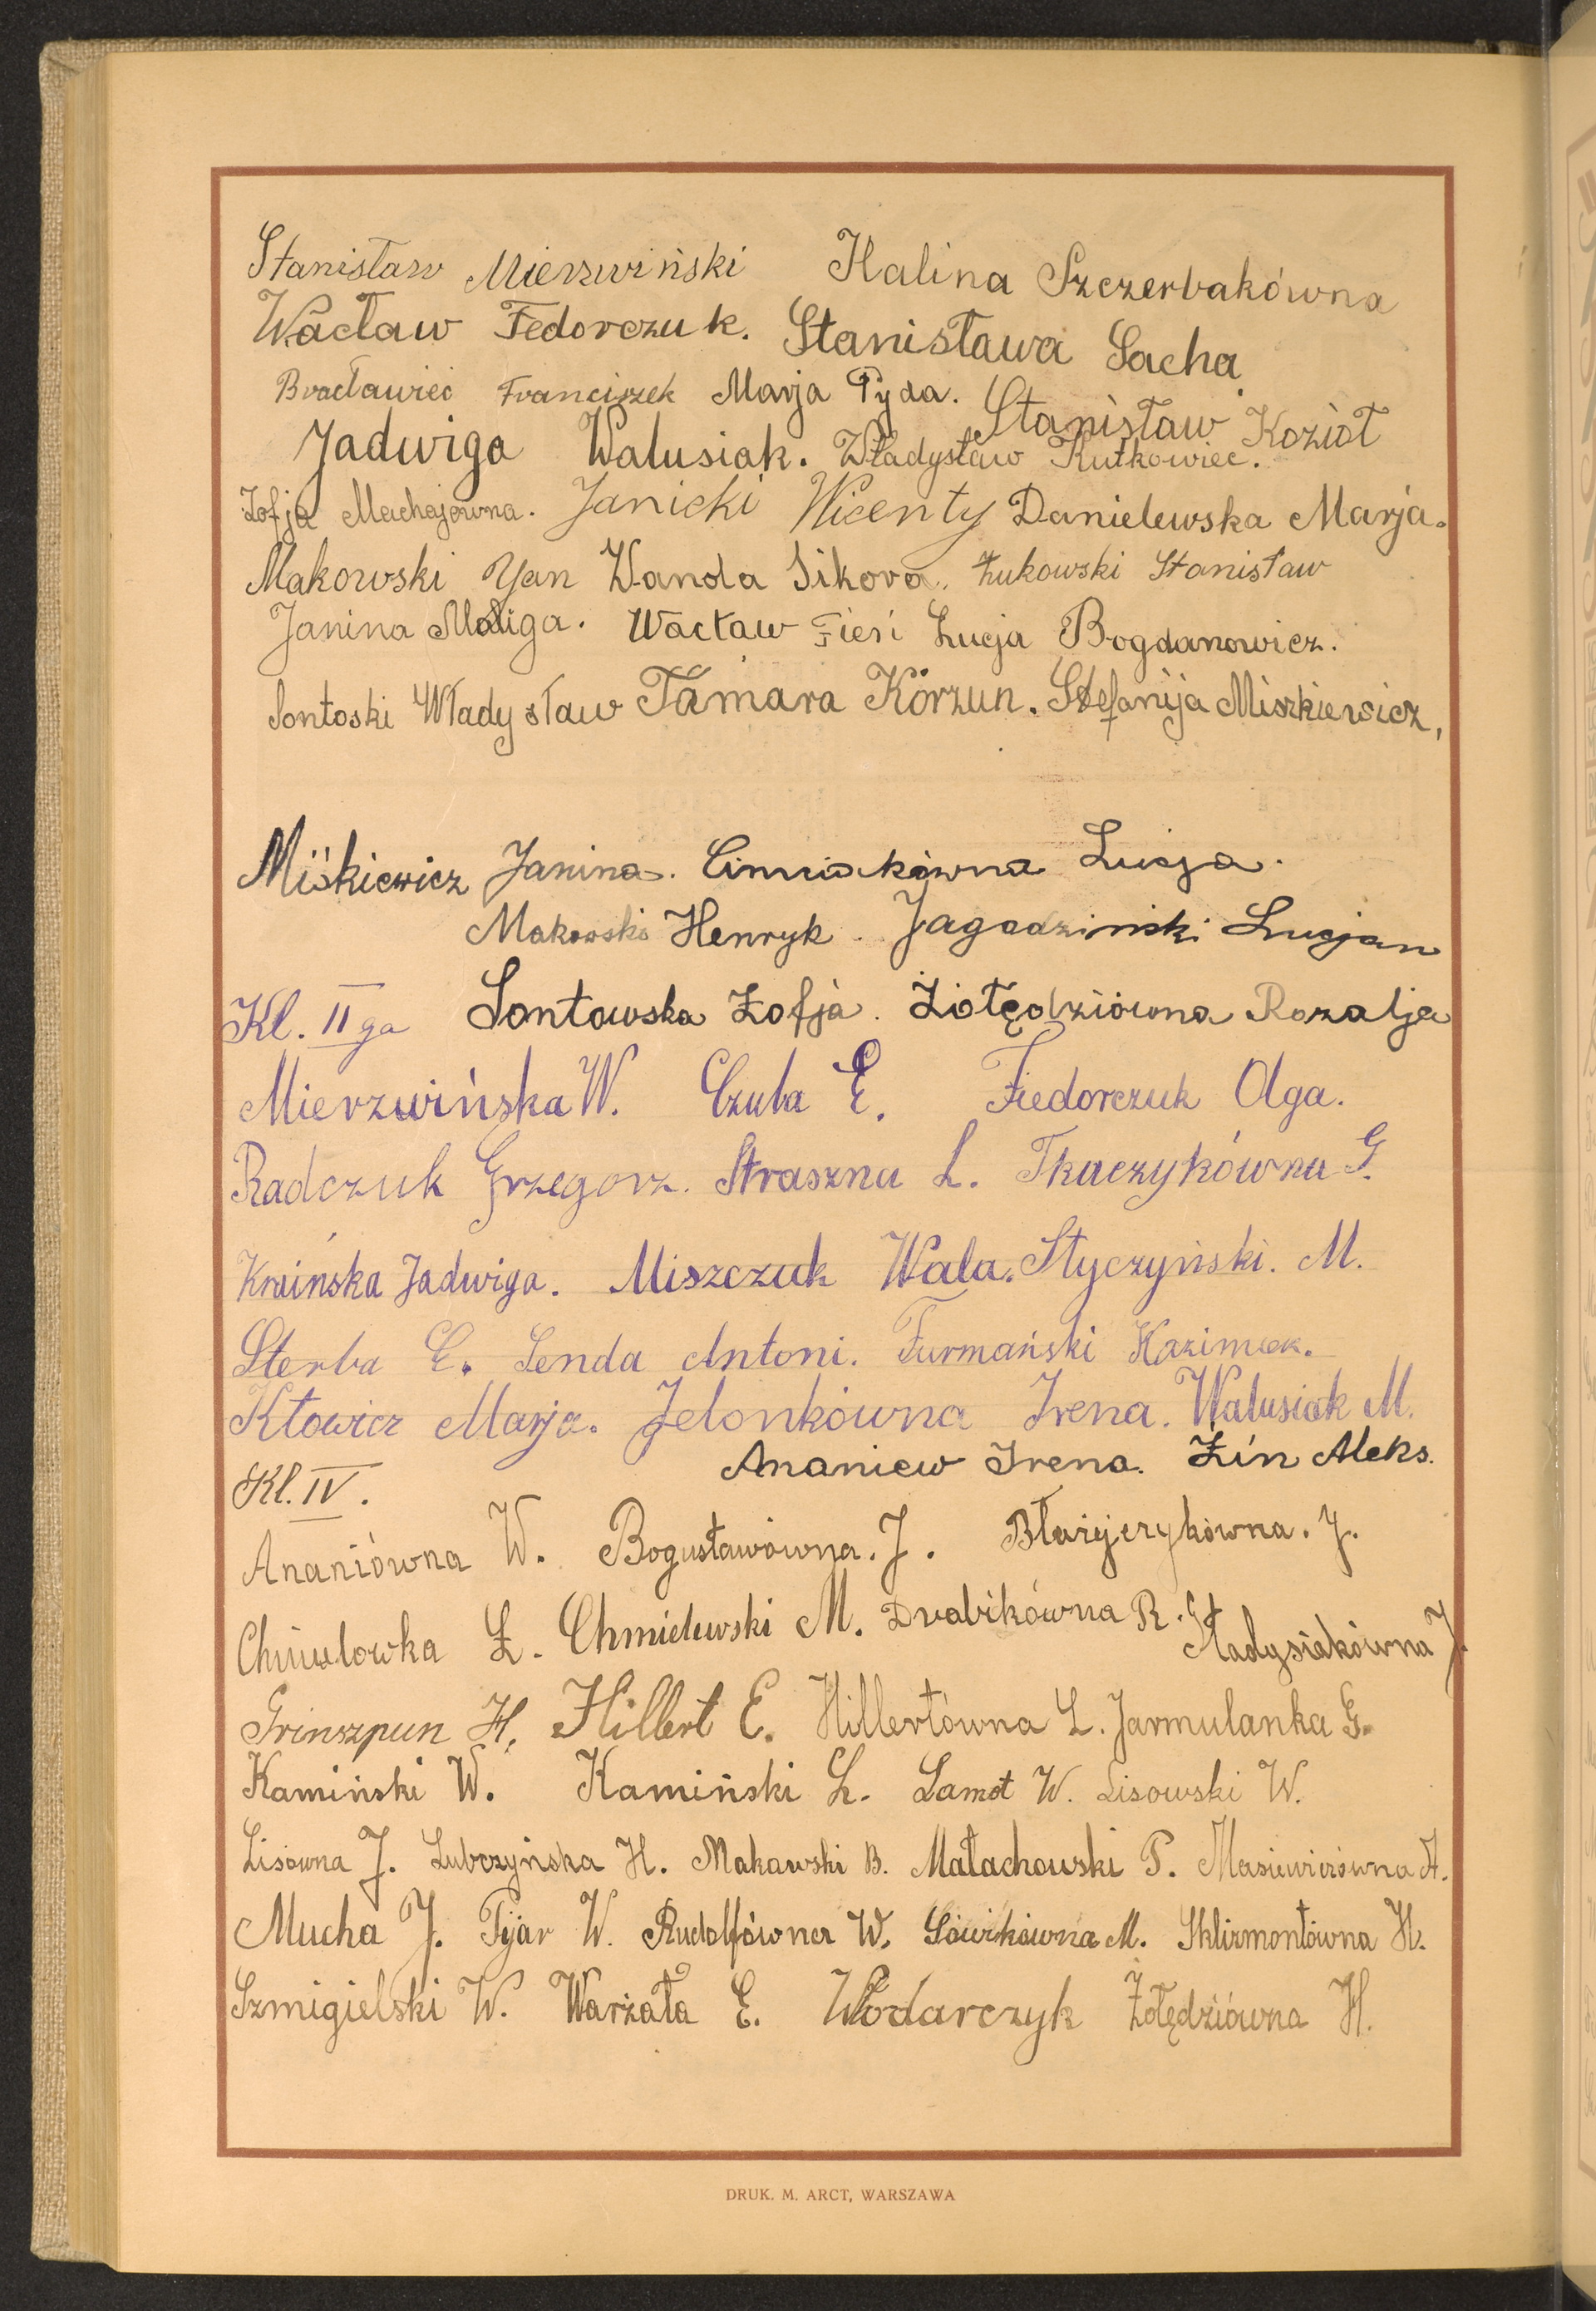 Stanisław Mierzwiński Halina Szczerbakówna
Wacław Fedorczuk. Stanisława Sacha
Bracławiec Franciszek Marja Pyda. Stanisław Kozioł
Jadwiga Walusiak. Władysław Kutkowiec.
Zofja Machajówna. Janicki Wicenty Danielewska Marja.
Makowski Yan Wanda Sikora. Żukowski Stanisław
Janina Maliga. Wacław Fieri Łucja Bogdanowicz.
Sontoski Władysław Tamara Korzun. Stefanija Miszkiewicz,
Miśkiewicz Janina. Łucja.
Makowski Henryk. Jagodziński Lucjan
Kl. II ga Sontowska Zofja. Żołędziówna Rozalja
Mierzwińska W. Czuba E. Fiedorczuk Olga.
Radczuk Grzegorz. Straszna L. Tkaczykówna G.
Kraińska Jadwiga. Miszczuk Wala. Styczyński. M.
Sterba E. Senda Antoni. Furmański
Kłowicz Marja. Jelonkówna Irena. Walusiak M.
Kl. IV. Ananiew Irena. Zin Aleks.
Ananiówna W. Bogusławówna. J. Błażejczykówna. J.
Chmielewski M. Drabikówna R. J.
Grinszpun H. Hillert E. Hillertówna L. Jarmulanka G.
Kamiński W. Kamiński L. Lamot W. Lisowski W.
Lisówna J. Lubczyńska H. Makawski B. Małachowski P. Masiewiczówna A.
Mucha J. Pyjar W. Rudolfówna W. Sówikówna M. Sklirmontówna H.
Szmigielski W. Warżała E. Włodarczyk Żołędziówna H.
DRUK. M. ARCT, WARSZAWA